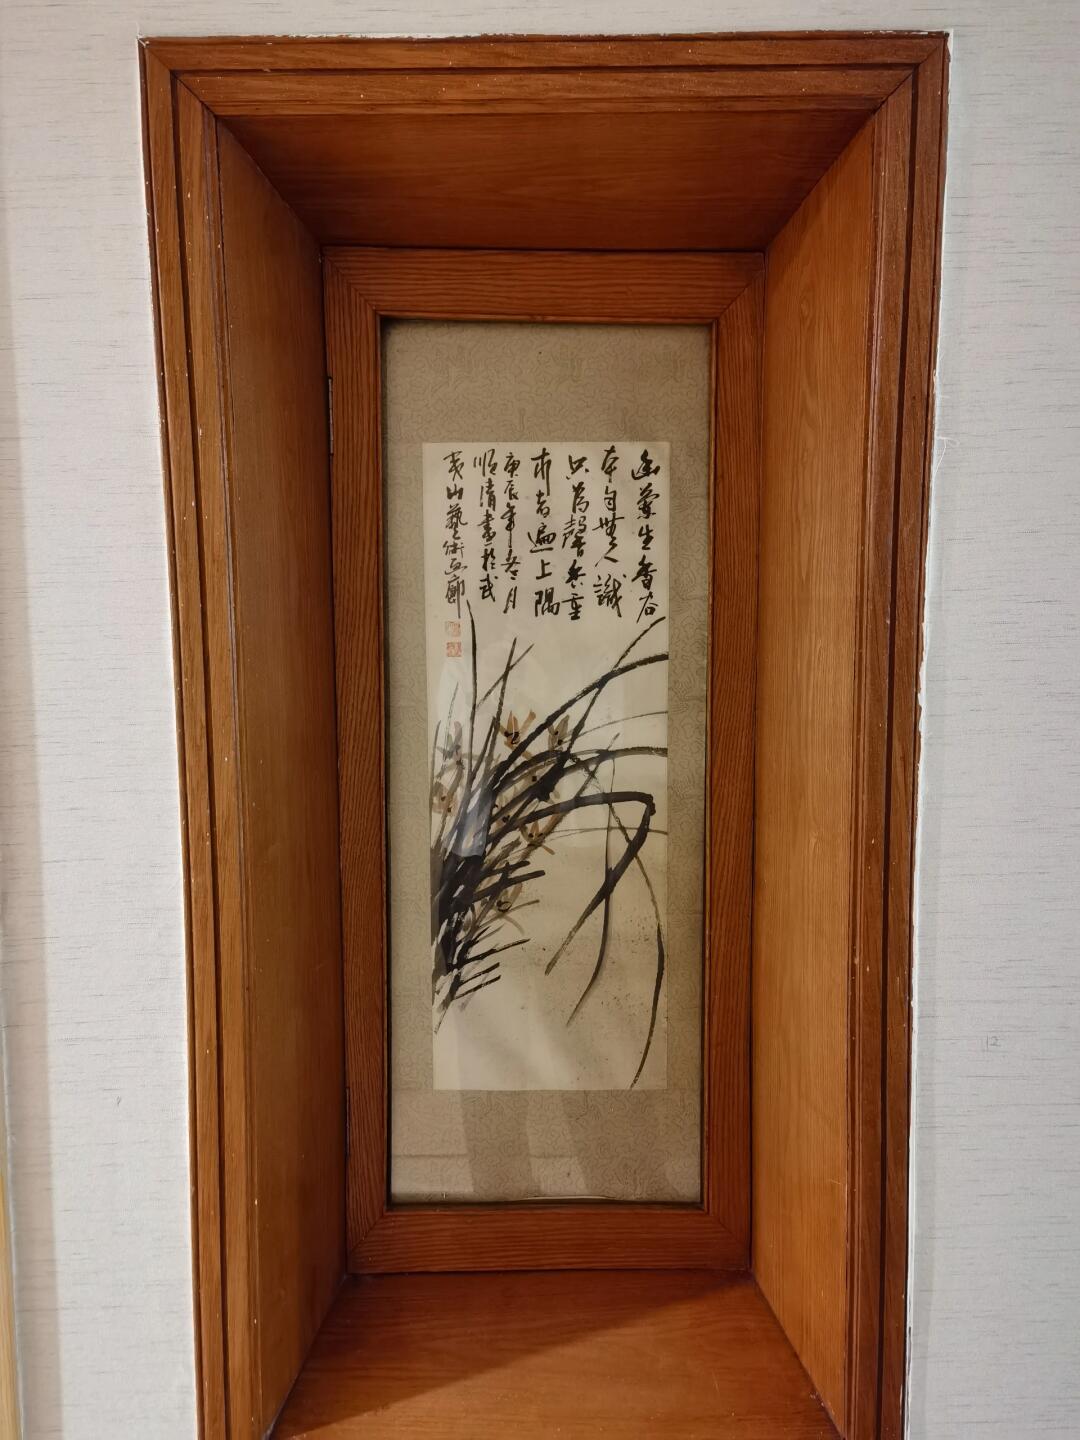 幽蘭生香谷
本自無人識
只為馨香重
求者遍山隅
庚辰年冬月
順清畫於武
夷山藝術画廊